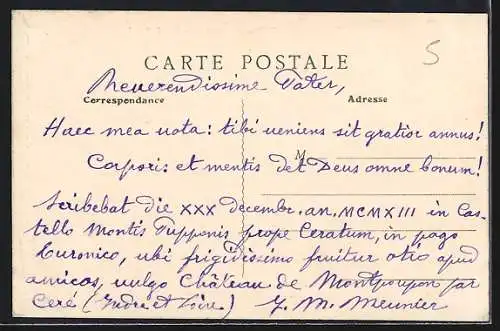 5
CARTE POSTALE
Reverendissime Pater,
Correspondance
Adresse
Haec mea vota: tibi veniens sit gratior annus!
M
Corporis et mentis det Deus omne bonum!
Scribebat die XXX Decembr. an. MCMXIII in Cas-
tello Montis Pupponis prope Ceratum, in pago
Turonico, ubi frigidissimo fruitur otio apud
amicos, vulgo Château de Montpoupon par
Ceré (Indre et Loire) J. M. Meunier